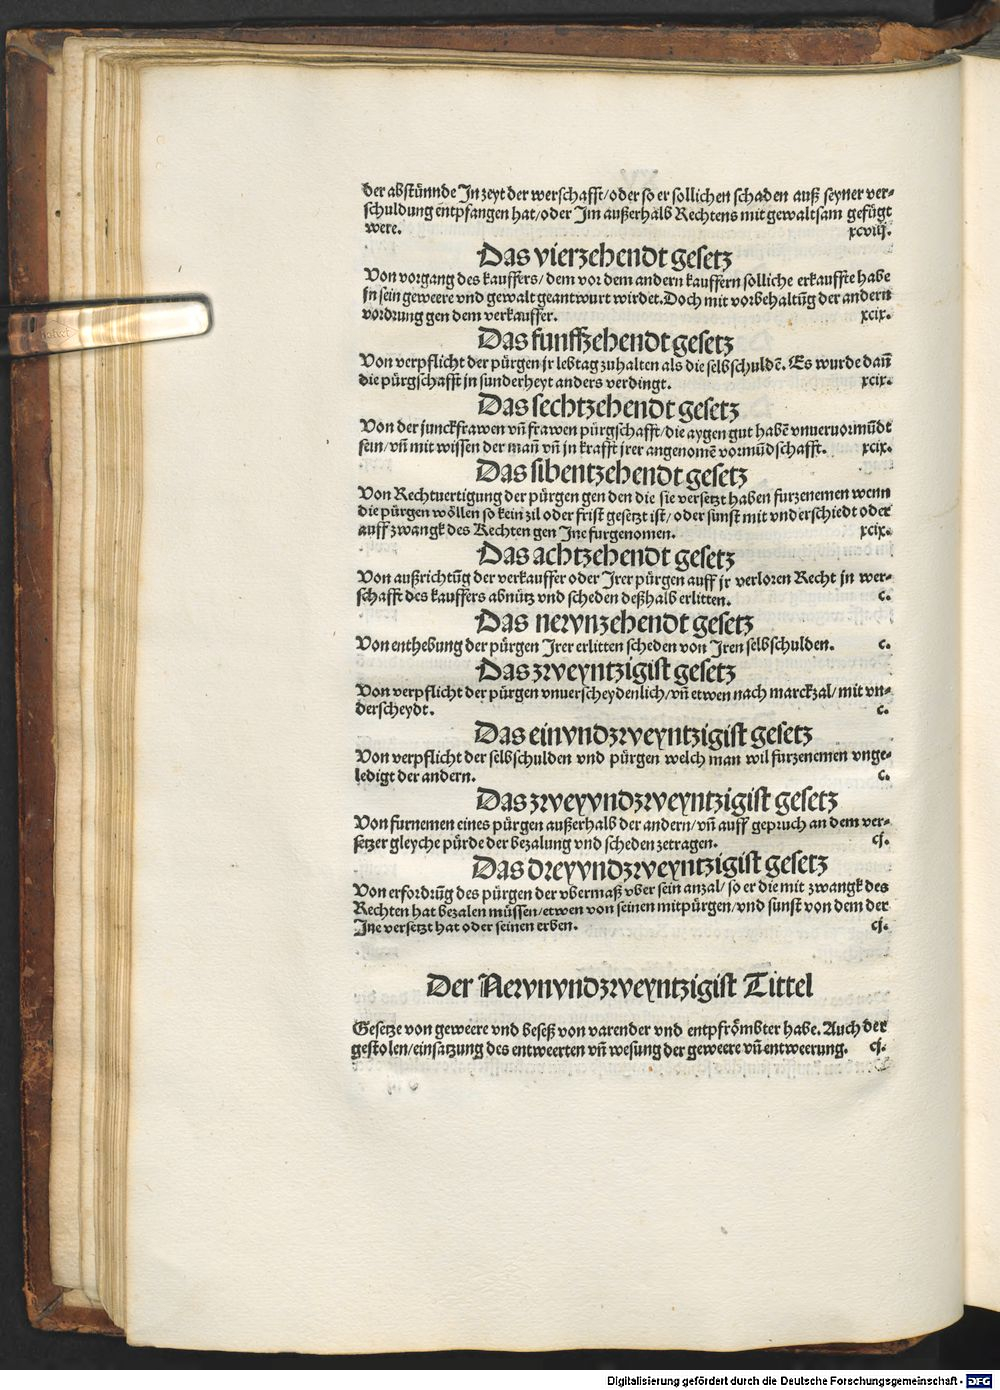 der abstünnde Jn zeyt der werschafft/oder so er sollichen schaden auß seyner ver⸗
schuldung entpfangen hat/oder Jm außerhalb Rechtens mit gewaltsam gefügt
were. xcviij.
Das vierzehendt gesetz
Von vorgang des kauffers/dem vor dem andern kauffern solliche erkauffte habe
jn sein geweere vnd gewalt geantwurt wirdet. Doch mit vorbehaltūg der andern
vordrung gen dem verkauffer. xcix.
Das funffzehendt gesetz
Von verpflicht der pürgen jr lebtag zuhalten als die selbschuldē. Es wurde dañ
die pürgschafft jn sunderheyt anders verdingt. xcix.
Das sechtzehendt gesetz
Von der junckfrawen vñ frawen pürgschafft/die aygen gut habē vnueruormūdt
sein/vñ mit wissen der mañ vñ jn krafft jrer angenomē vormūdschafft. xcix.
Das sibentzehendt gesetz
Von Rechtuertigung der pürgen gen den die sie versetzt haben furzenemen wenn
die pürgen wöllen so kein zil oder frist gesetzt ist/oder sunst mit vnderschiedt oder
auff zwangk des Rechten gen Jne furgenomen. xcix.
Das achtzehendt gesetz
Von außrichtūg der verkauffer oder Jrer pürgen auff jr verloren Recht jn wer⸗
schafft des kauffers abnütz vnd scheden deßhalb erlitten. c.
Das newnzehendt gesetz
Von enthebung der pürgen Jrer erlitten scheden von Jren selbschulden. c.
Das zweyntzigist gesetz
Von verpflicht der pürgen vnuerscheydenlich/vñ etwen nach marckzal/mit vn⸗
derscheydt. c.
Das einvndzweyntzigist gesetz
Von verpflicht der selbschulden vnd pürgen welch man wil furzenemen vnge⸗
ledigt der andern. c.
Das zweyvndzweyntzigist gesetz
Von furnemen eines pürgen außerhalb der andern/vñ auff gepruch an dem ver⸗
setzer gleyche pürde der bezalung vnd scheden zetragen. cj.
Das dreyvndzweyntzigist gesetz
Von erfordrūg des pürgen der vbermaß vber sein anzal/so er die mit zwangk des
Rechten hat bezalen müssen/etwen von seinen mitpürgen/vnd sunst von dem der
Jne versetzt hat oder seinen erben. cj.
Der Newnvndzweyntzigist Tittel
Gesetze von geweere vnd beseß von varender vnd entpfrömbter habe. Auch der
gestolen/einsatzung des entweerten vñ wesung der geweere vñ entweerung. cj.
Digitalisierung gefördert durch die Deutsche Forschungsgemeinschaft - DFG